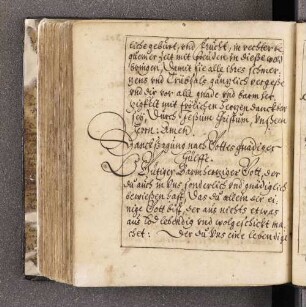 liebs geburt, und frucht, in rechter be
quemer zeit mit freuden in dieser welt
bringen, damit sie alle ihres schmer
zens und Triebsals gäntzlich vergesse
und dir vor alle gnade und barmher
zigkeit mit frölichem Hertzen danckbar
sey, Durch Jesum Christum unsern
Herrn: Amen.
Dancksagung nach Gottes gnädiger
Hülffe.
Gütiger Barmhertziger Gott, der
du auch in uns sonderlich und gnädiglich
bewiesen hast, Das du allein der ei
nige Gott bist, der aus nichts etwas
aus lebendig und wolgeschickt ma
chet: Der du uns eine lebendige